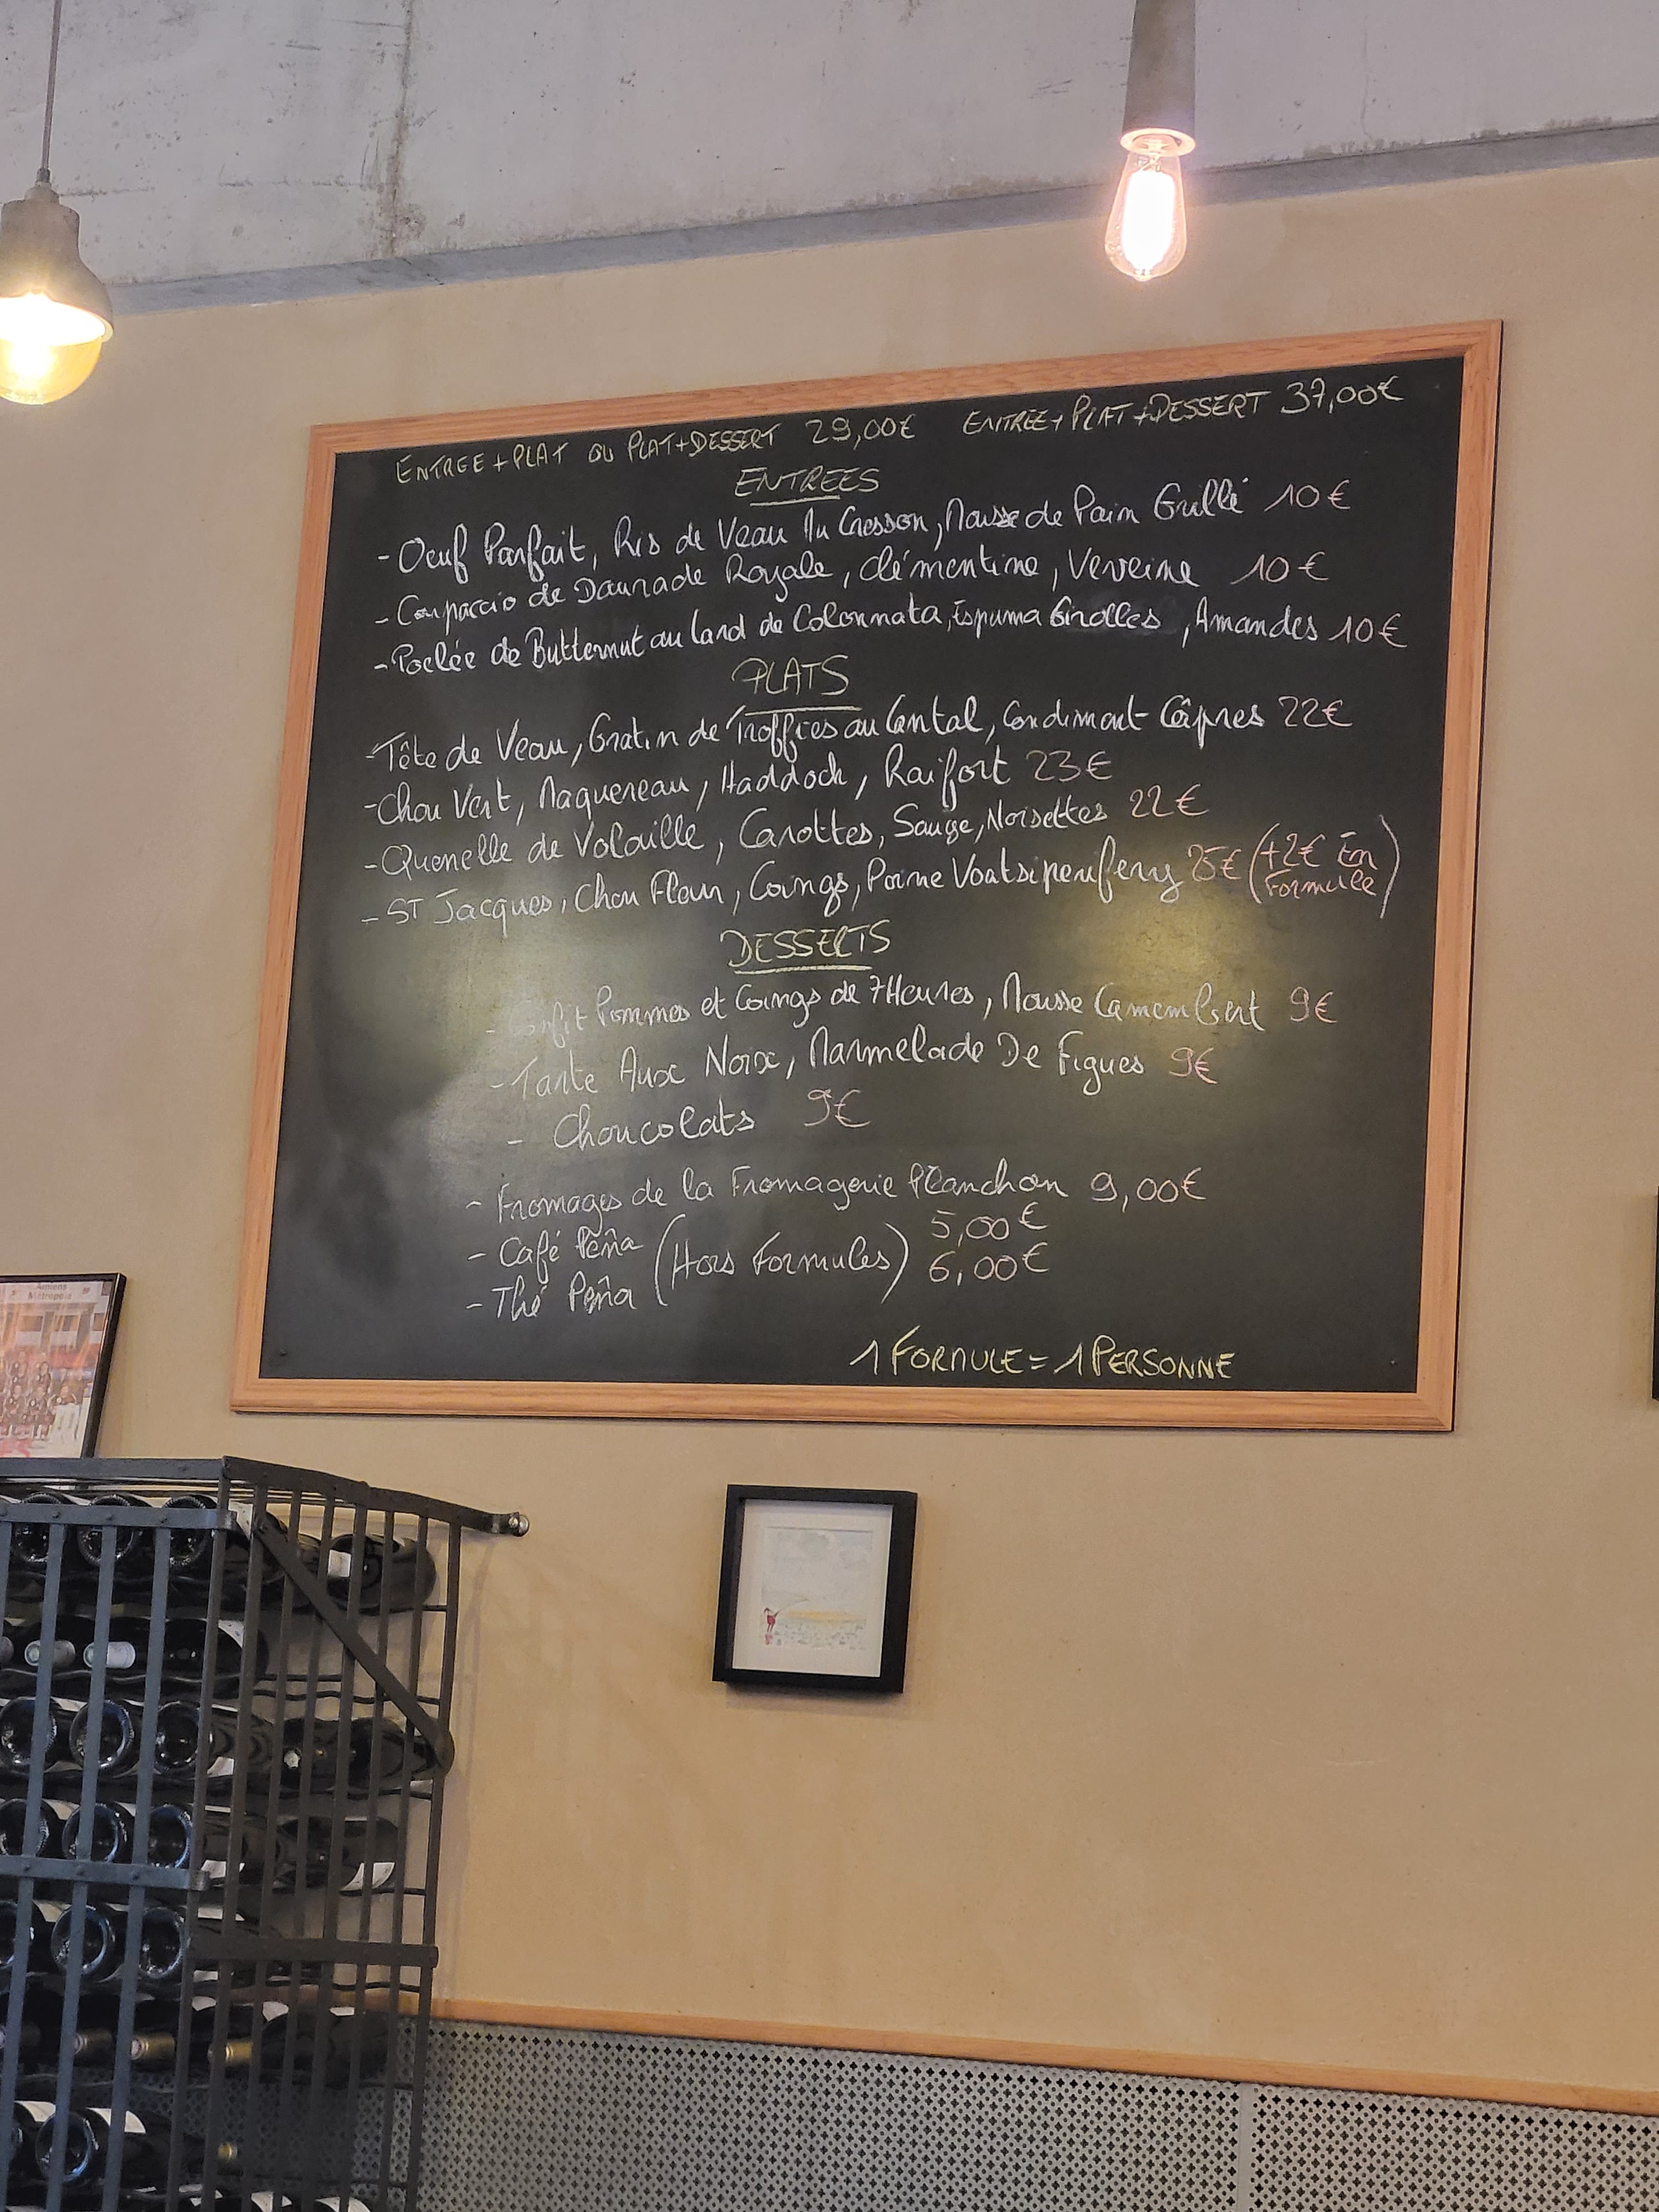 ENTREE+PLAT OU PLAT+DESSERT 29,00€ ENTREE+PLAT+DESSERT 37,00€
ENTREES
- Oeuf Parfait, Ris de Veau Au Cresson, Mousse de Pain Grillé 10€
- Carpaccio de Daurade Royale, Clémentine, Verveine 10€
- Poelée de Butternut au Lard de Colonnata, Espuma Girolles, Amandes 10€
PLATS
- Tête de Veau, Gratin de Troffies au Cantal, Condiment Câpres 22€
- Chou Vert, Maquereau, Haddock, Raifort 23€
- Quenelle de Volaille, Carottes, Sauge, Noisettes 22€
- ST Jacques, Chou Fleur, Coings, Poivre Voatsiperifery 25€ (+2€ En Formule)
DESSERTS
- Confit Pommes et Coings de 7 Heures, Mousse Camembert 9€
- Tarte Aux Noix, Marmelade De Figues 9€
- Choucolats 9€
- Fromages de la Fromagerie Planchon 9,00€
- Café Peña (Hors Formules) 5,00€
- Thé Peña 6,00€
1 FORMULE = 1 PERSONNE
Amiens
Métropole